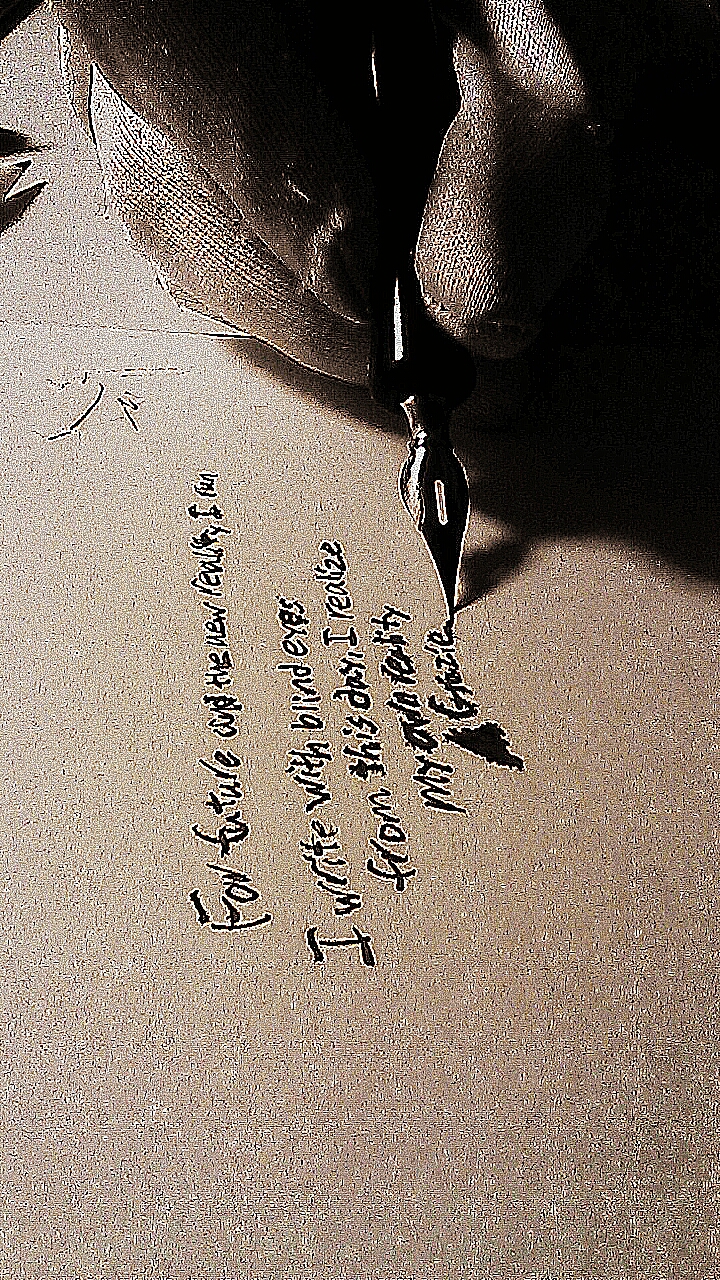 For future and the new reality, I can
I write with blind eyes
from this day, I realize
my own reality
Grazie